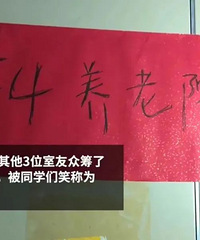 4养老院
其他3位室友众筹了
被同学们笑称为